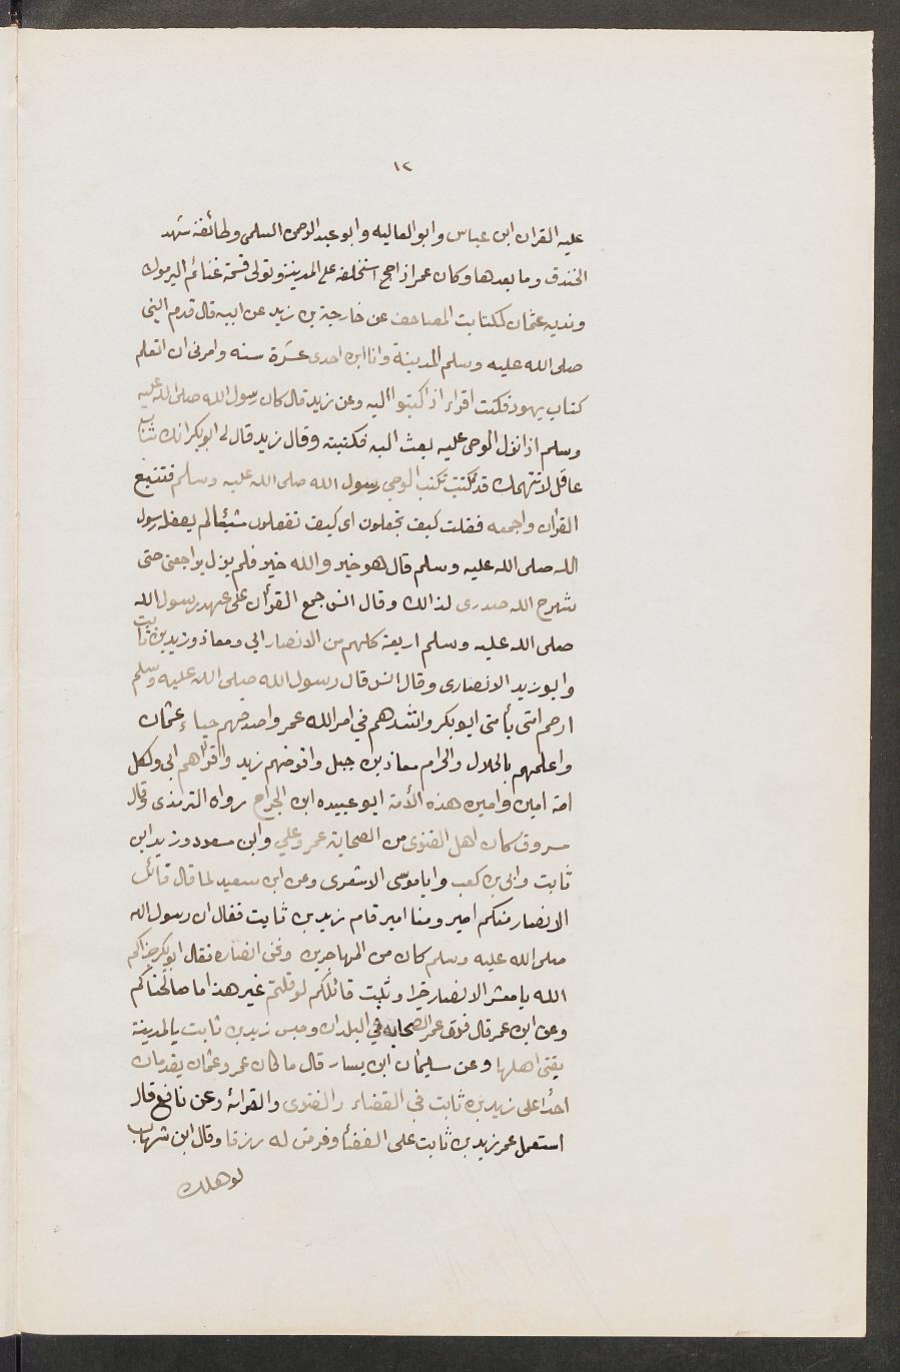 ١٢
عليه القران ابن عباس وابو العاليه وابو عبد الرحمن السلمى وطائفة شهد
الخندق وما بعدها وكان عمر اذا حج استخلفه على المدينة وتولى قسمة غنائم اليرموك
وندبه عثمان لكتابت المصاحف عن خارجة بن زيد عن ابيه قال قدم النبى
صلى الله عليه وسلم المدينة وانا ابن احدى عشرة سنه وامرنى ان اتعلم
كتاب يهود فكنت اقراء اذا كتبوا اليه وعن زيد قال كان رسول الله صلى الله عليه
وسلم اذا نزل الوحى عليه بعث اليه فكتبته وقال زيد قال لى ابوبكر انك شاب
عاقل لا نتهمك قد كنت تكتب الوحي رسول الله صلى الله عليه وسلم فتتبع
القران واجمعه فقلت كيف تجعلون اى كيف تفعلون شيئا لم يفعله رسول
الله صلى الله عليه وسلم قال هو خير والله خير فلم يزل يراجعنى حتى
شرح الله صدرى لذالك وقال انس جمع القرأن على عهد رسول الله
صلى الله عليه وسلم اربعة كلهم من الانصار ابي ومعاذ وزيد بن ثابت
وابو زيد الانصارى وقال انس قال رسول الله صلى الله عليه وسلم
ارحم امتى بأمتى ابوبكر واشدهم في امر الله عمر واصدقهم حياء عثمان
واعلمهم بالحلال والحرام معاذ بن جبل وافرضهم زيد واقراهم ابى ولكل
امة امين وامين هذه الأمة ابو عبيده ابن الجراح رواه الترمذى وقال
مسروق كان اهل الفتوى من الصحابة عمر وعلي وابن مسعود وزيد ابن
ثابت وابى بن كعب وابا موسى الاشعرى وعن ابن سعيد لما قال قائل
الانصار منكم امير ومنا امير قام زيد بن ثابت فقال ان رسول الله
صلى الله عليه وسلم كان من المهاجرين ونحن انصاره فقال ابوبكر جزاكم
الله يا معشر الانصار خيرا وثبت قائلكم لو قلتم غير هذا ما صالحناكم
وعن ابن عمر قال فرق عمر الصحابه في البلدان وحبس زيد بن ثابت بالمدينة
يفتى اهلها وعن سليمان ابن يسار قال ما كان عمر وعثمان يقدمان
احدا على زيد بن ثابت في القضاء والفتوى والقرائة وعن نافع قال
استعمل عمر زيد بن ثابت على القضأ وفرض له رزقا وقال ابن شهاب
لو هلك